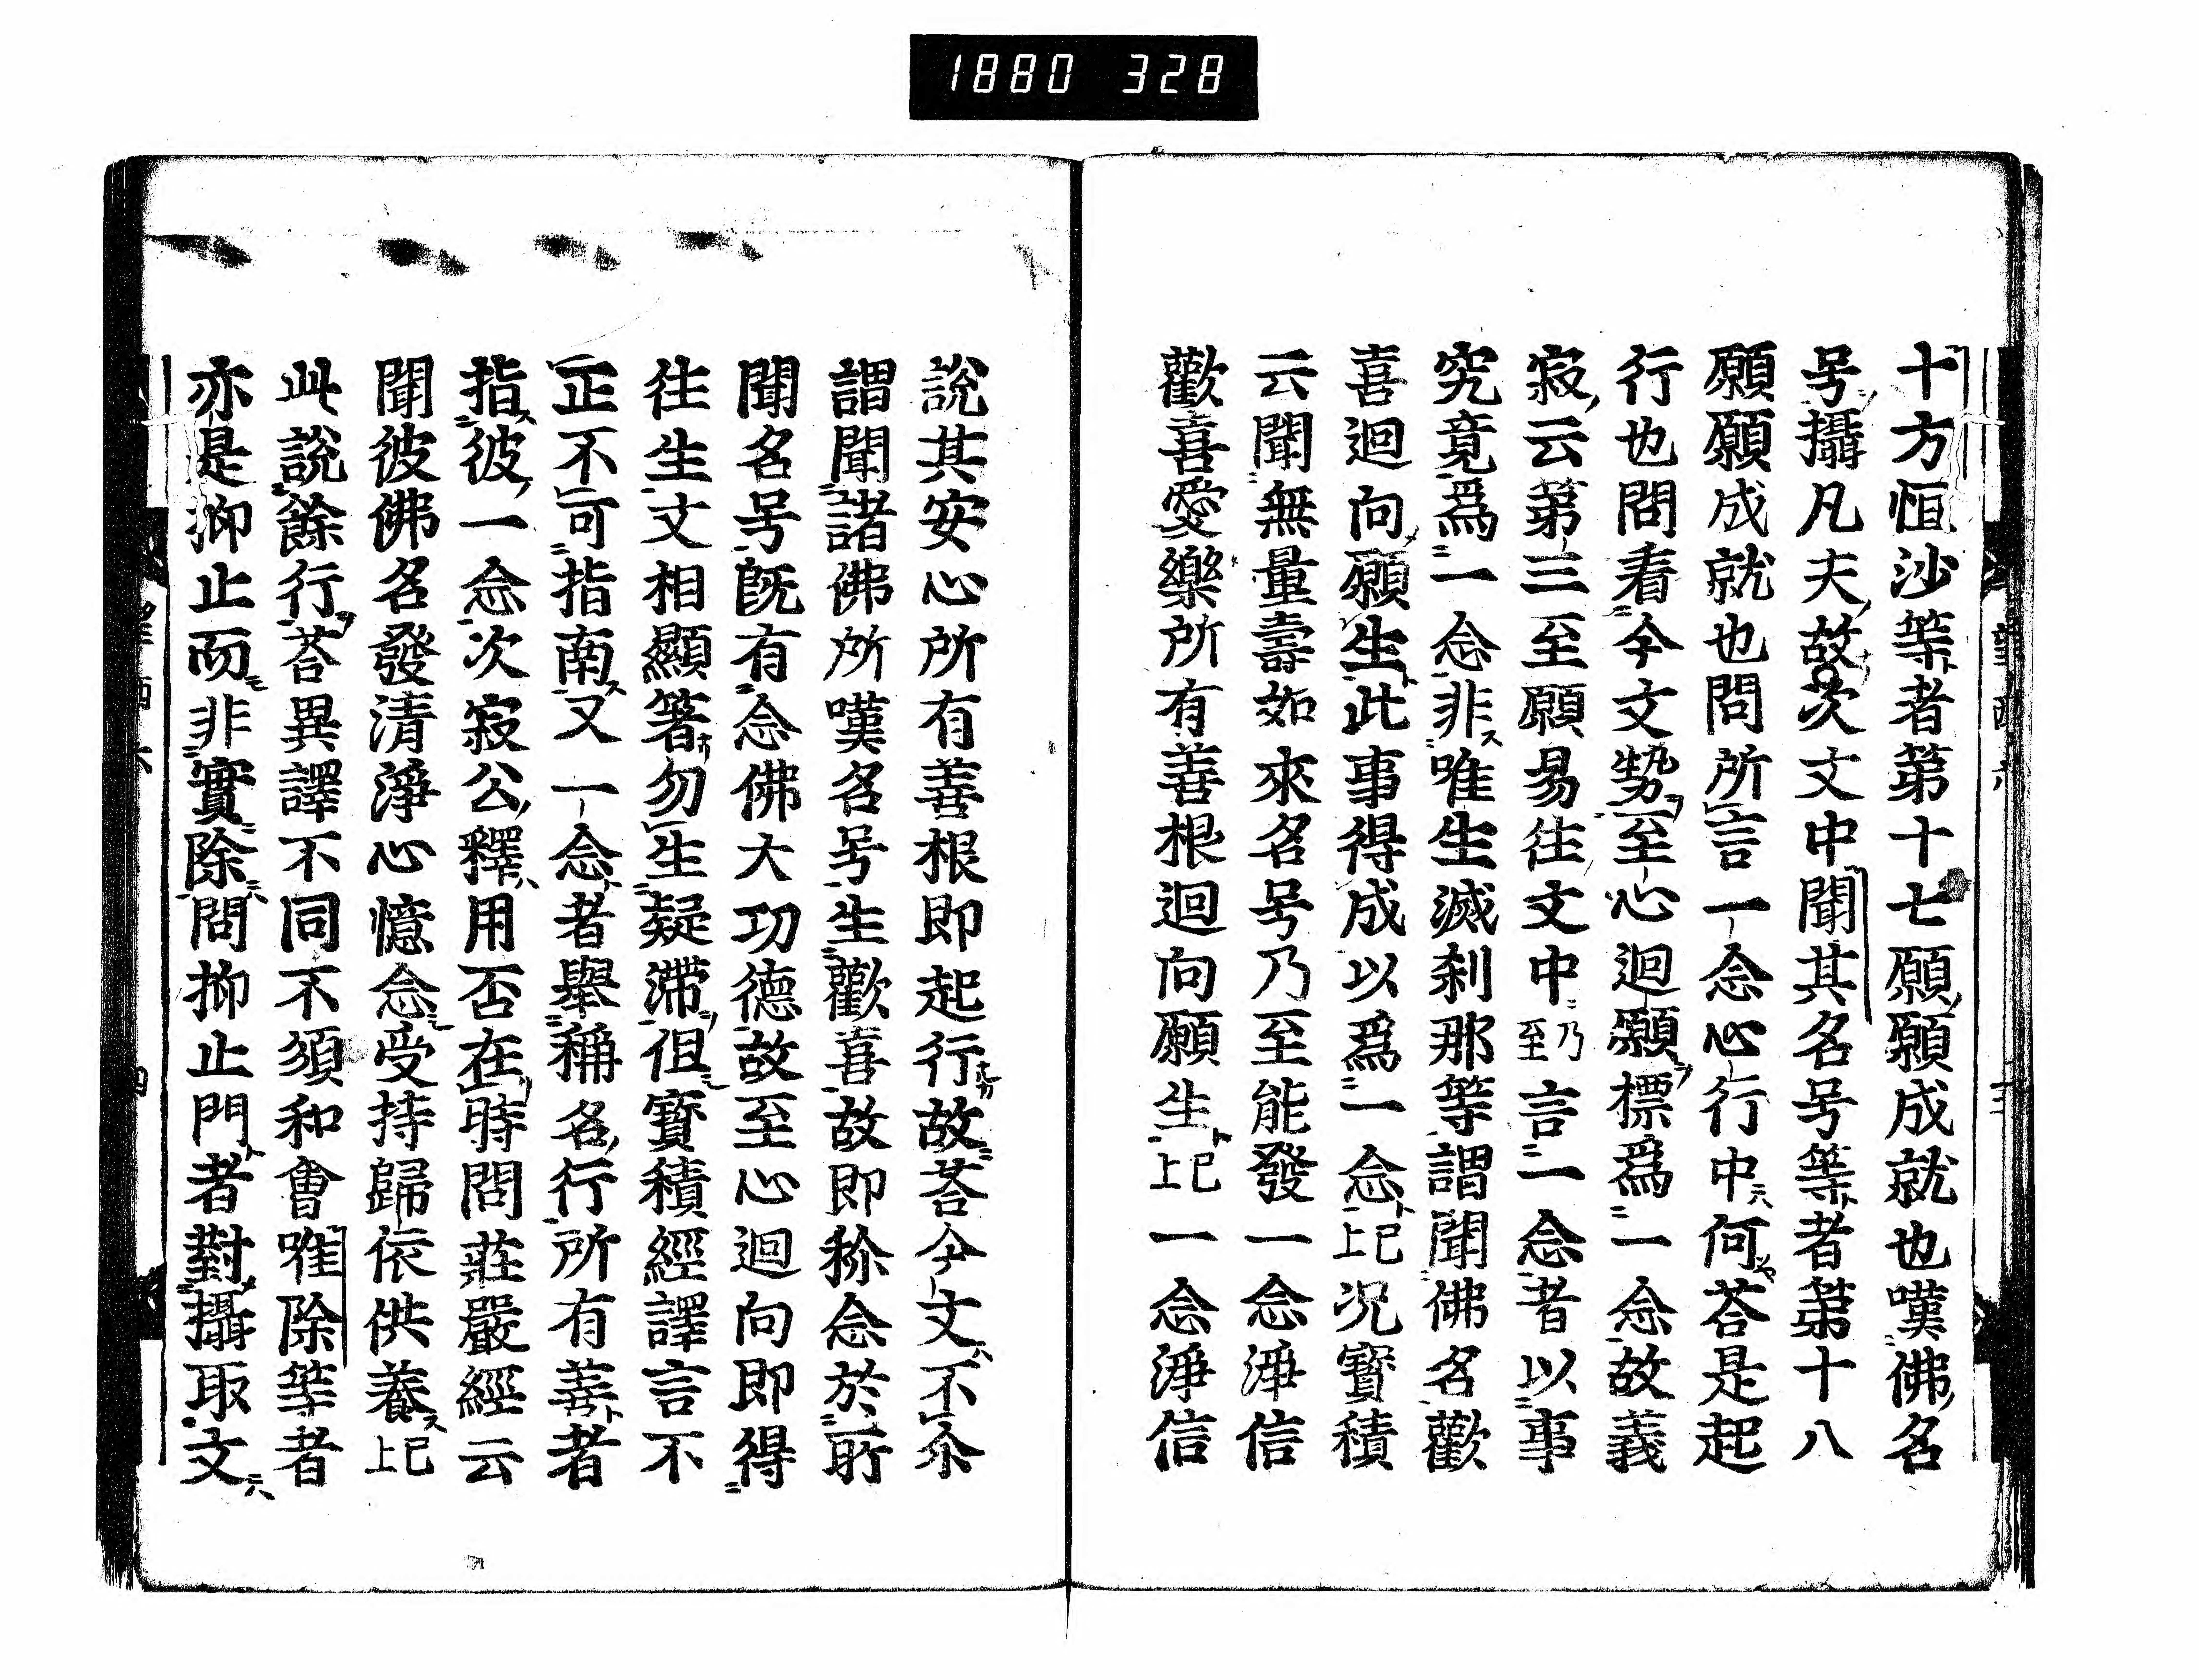 1880 328
十方恒沙等者第十七願願成就也嘆佛名
号攝凡夫故次文中聞其名号等者第十八
願願成就也問所言一念心行中何荅是起
行也問看今文勢至心迴願標爲一念故義
寂云第三至願易往文中乃至言一念者以事
究竟爲一念非唯生滅刹那等謂聞佛名歡
喜迴向願生此事得成以爲一念已上況寳積
云聞無量壽如來名号乃至能發一念淨信
歡喜愛樂所有善根迴向願生已上一念淨信
說其安心所有善根即起行故荅今文不尒
謂聞諸佛所嘆名号生歡喜故即称念於所
聞名号旣有念佛大功德故至心迴向即得
往生文相顯著勿生疑滯但寳積經譯言不
正不可指南又一念者舉稱名行所有善者
指彼一念次寂公釋用否在時問莊嚴經云
聞彼佛名發清淨心憶念受持歸依供養已上
此說餘行荅異譯不同不須和會唯除等者
亦是抑止而非實除問抑止門者對攝取文